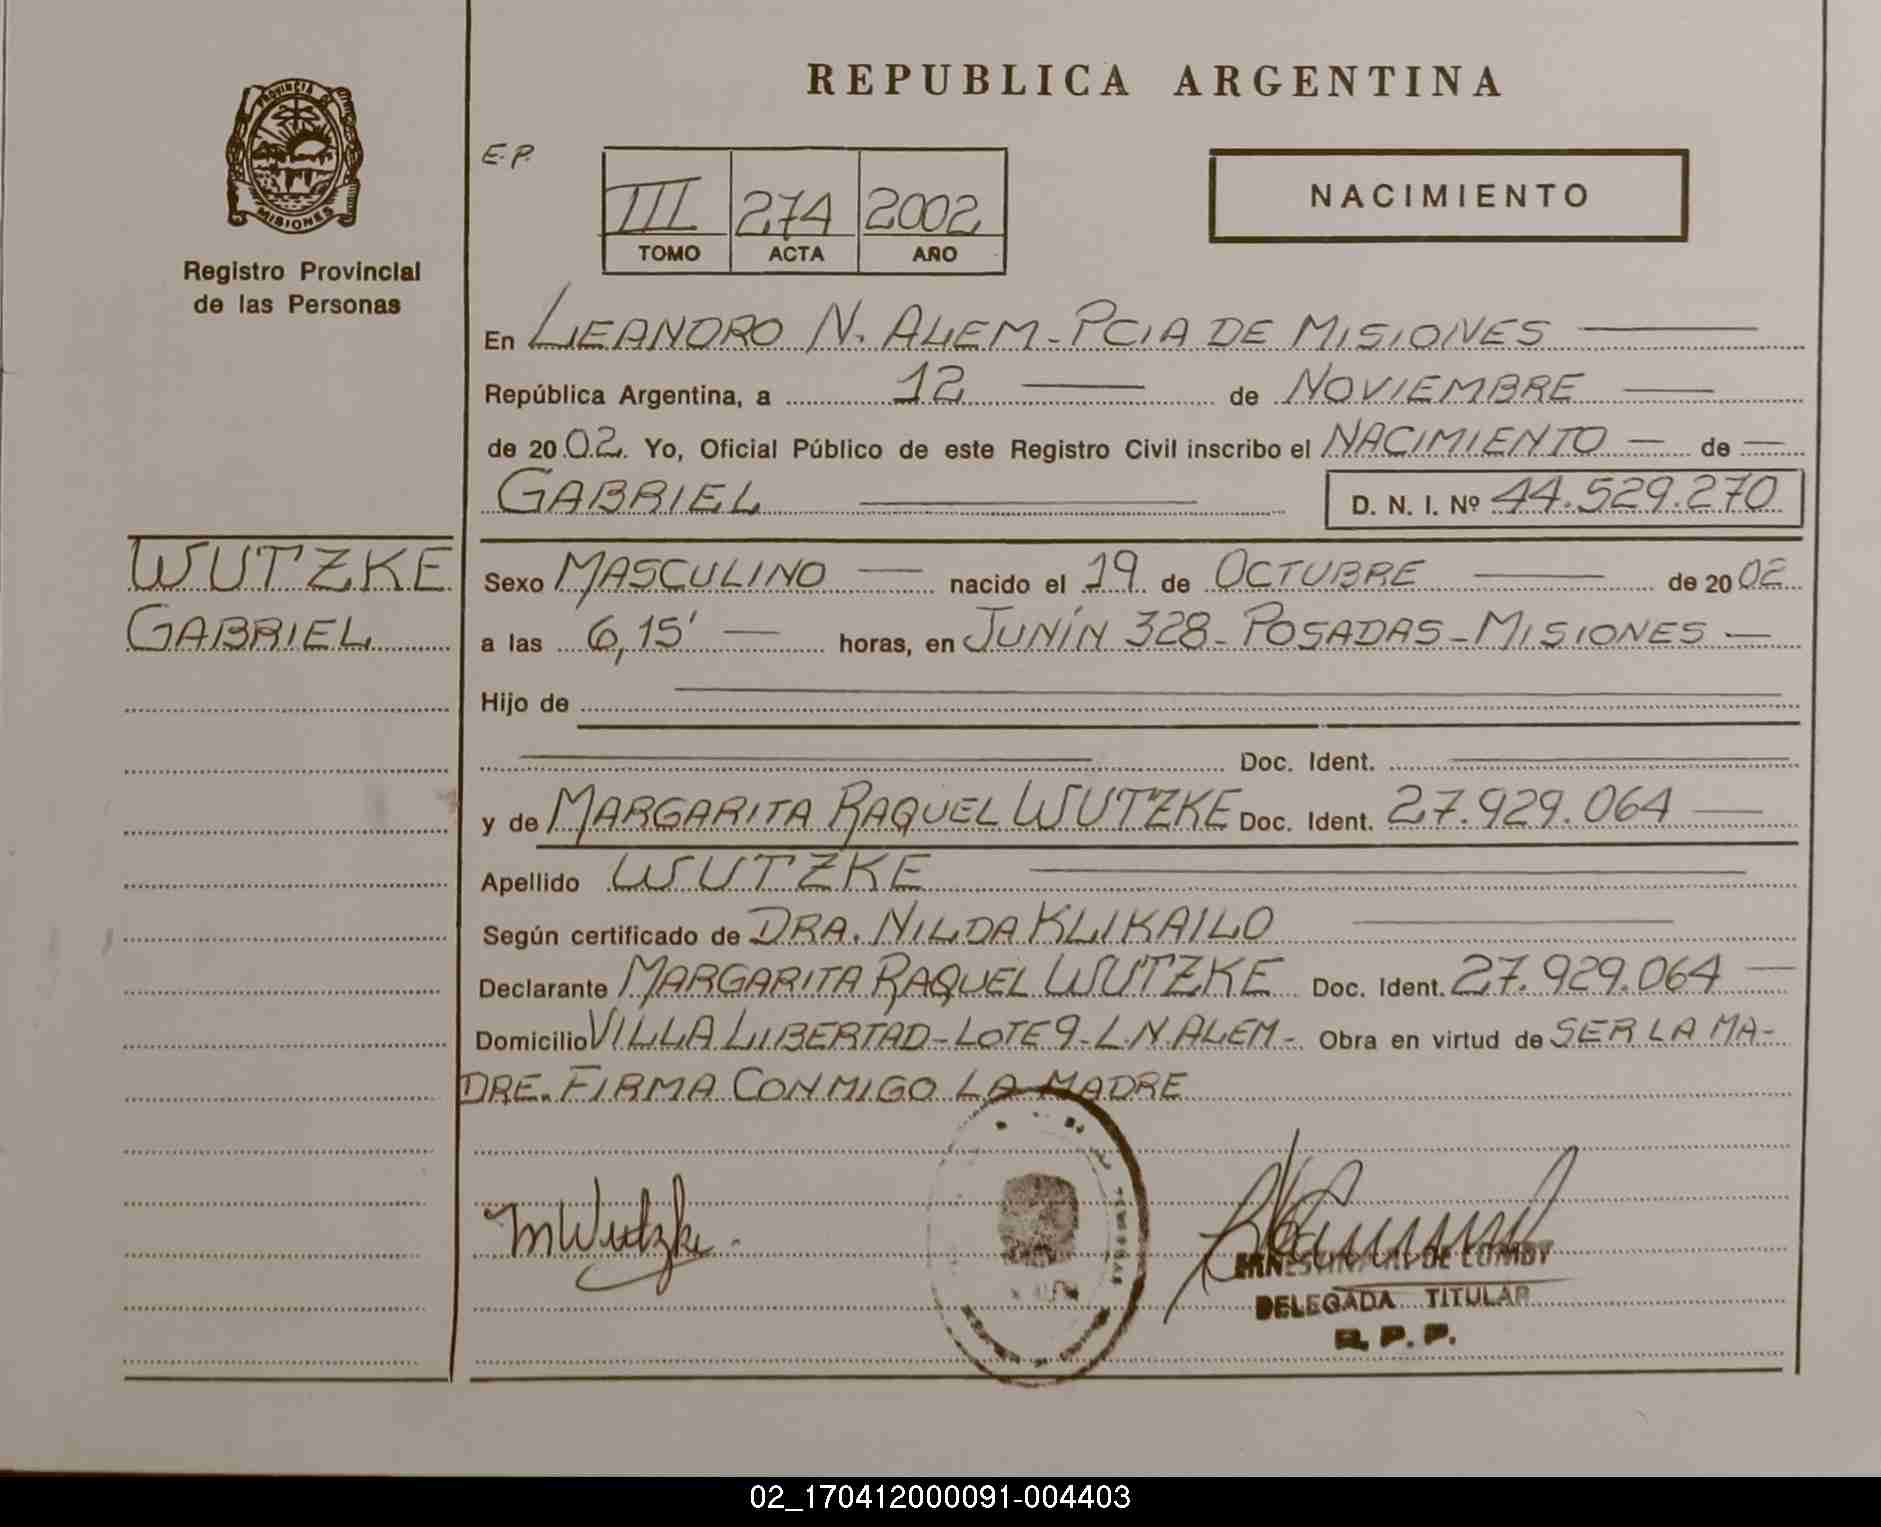 REPUBLICA ARGENTINA
PROVINCIA DE
MISIONES
Registro Provincial
de las Personas
E.P.
III 274 2002
TOMO ACTA AÑO
NACIMIENTO
En LEANDRO N. ALEM - PCIA DE MISIONES
República Argentina, a 12 de NOVIEMBRE
de 2002. Yo, Oficial Público de este Registro Civil inscribo el NACIMIENTO de
GABRIEL D. N. I. Nº 44.529.270
WUTZKE
GABRIEL
Sexo MASCULINO nacido el 19 de OCTUBRE de 2002
a las 6,15' horas, en JUNÍN 328 - POSADAS - MISIONES
Hijo de
Doc. Ident.
y de MARGARITA RAQUEL WUTZKE Doc. Ident. 27.929.064
Apellido WUTZKE
Según certificado de DRA. NILDA KLIKAILO
Declarante MARGARITA RAQUEL WUTZKE Doc. Ident. 27.929.064
Domicilio VILLA LIBERTAD - LOTE 9 - L.N.ALEM - Obra en virtud de SER LA MA-
DRE. FIRMA CONMIGO LA MADRE
MWutzke.
DE
DELEGADA TITULAR
R. P. P.
02_170412000091-004403